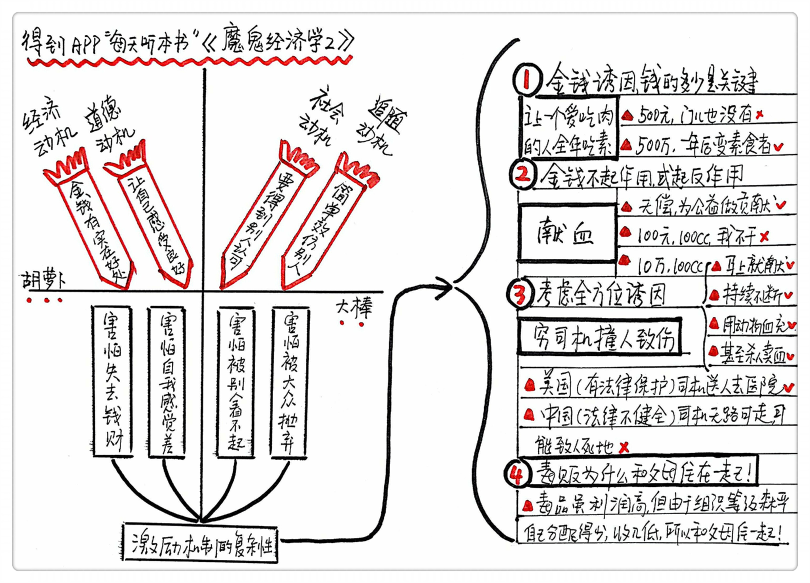 得到APP“每天听本书”《魔鬼经济学2》
经济动机
道德动机
社会动机
追随动机
金钱有实在好处
让自己感受良好
要得到别人认可
简单效仿别人
胡萝卜
大棒
害怕失去钱财
害怕自我感觉差
害怕被别人看不起
害怕被大众抛弃
激励机制的复杂性
1 金钱诱因,钱的多少是关键
让一个爱吃肉
的人全年吃素
500元,门儿也没有×
500万,一年后变素食者✓
2 金钱不起作用,或起反作用
献血
无偿,为公益做贡献✓
100元,100cc,我不干×
10万,100cc
马上就献✓
持续不断✓
用动物血充✓
甚至杀人卖血✓
3 考虑全方位诱因
穷司机撞人致伤
美国(有法律保护)司机送人去医院✓
中国(法律不健全)司机无路可走,可
能致人死地×
4 毒贩为什么和父母住在一起!
毒品虽利润高,但由于组织等级森严
自己分配得少,收入低,所以和父母住一起!